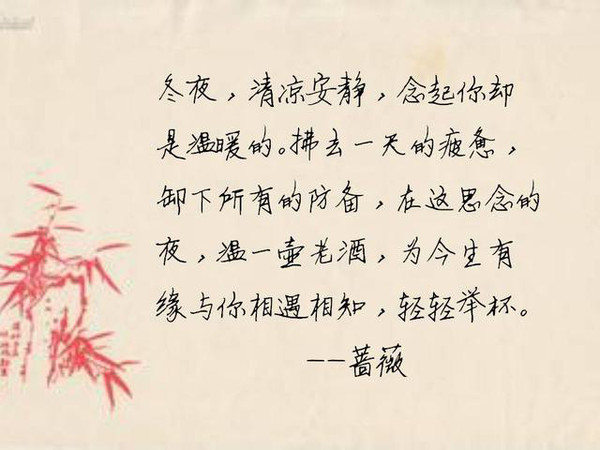 冬夜，清凉安静，念起你却
是温暖的。拂去一天的疲惫，
卸下所有的防备，在这思念的
夜，温一壶老酒，为今生有
缘与你相遇相知，轻轻举杯。
——蔷薇